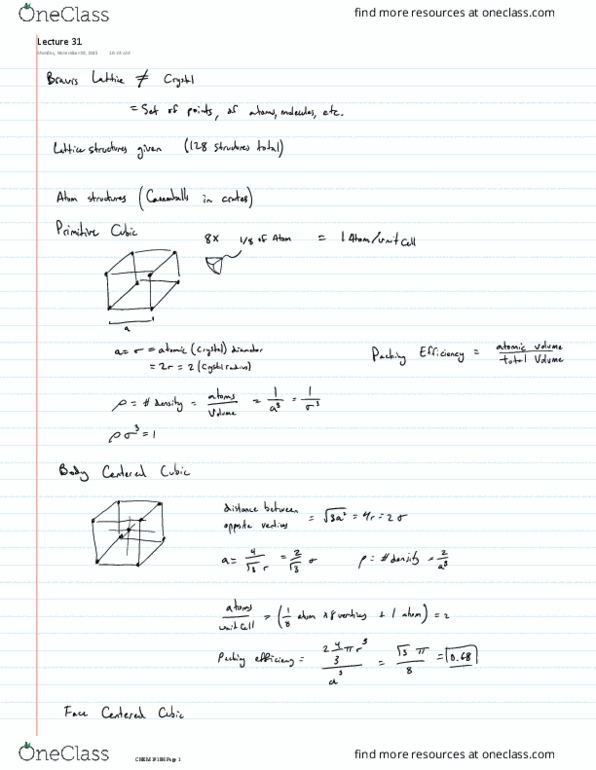 OneClass
find more resources at oneclass.com
Lecture 31
Bravis Lattice ≠ Crystl
= Set of points, of atoms, molecules, etc.
Lattice structures given (128 structures total)
Atom structures (Cannonballs in crates)
Primitive Cubic
8x 1/8 of Atom = 1 Atom/unit cell
a
a = σ = atomic (crystal) diameter
= 2r = 2 (Crystal radius)
Packing Efficiency = atomic volume / total Volume
ρ = # density = atoms / Volume = 1/a³ = 1/σ³
ρσ³ = 1
Body Centered Cubic
distance between opposite verties = √3a² = 4r = 2σ
a = 4/√3 r = 2/√3 σ ρ = # density = 2/a³
atoms / unit cell = (1/8 atom x 8 verties + 1 atom) = 2
Packing efficiency = 2 4/3 πr³ / a³ = √3 π / 8 = 0.68
Face Centered Cubic
OneClass
Page 1
find more resources at oneclass.com